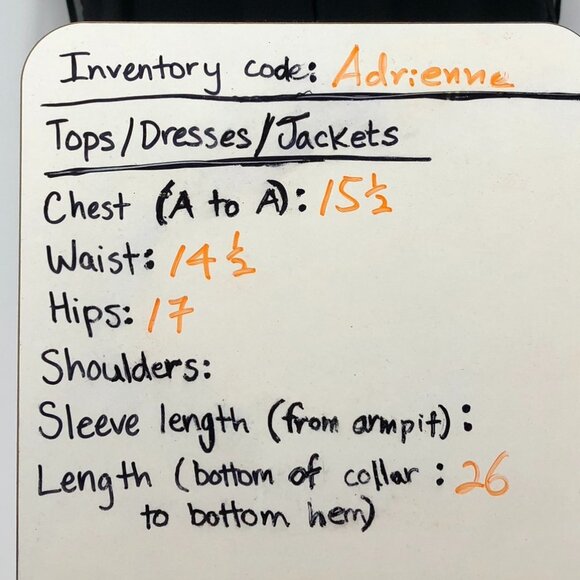 Inventory code: Adrienne
Tops/Dresses/Jackets
Chest (A to A): 15 1/2
Waist: 14 1/2
Hips: 17
Shoulders:
Sleeve length (from armpit):
Length (bottom of collar : 26
to bottom hem)